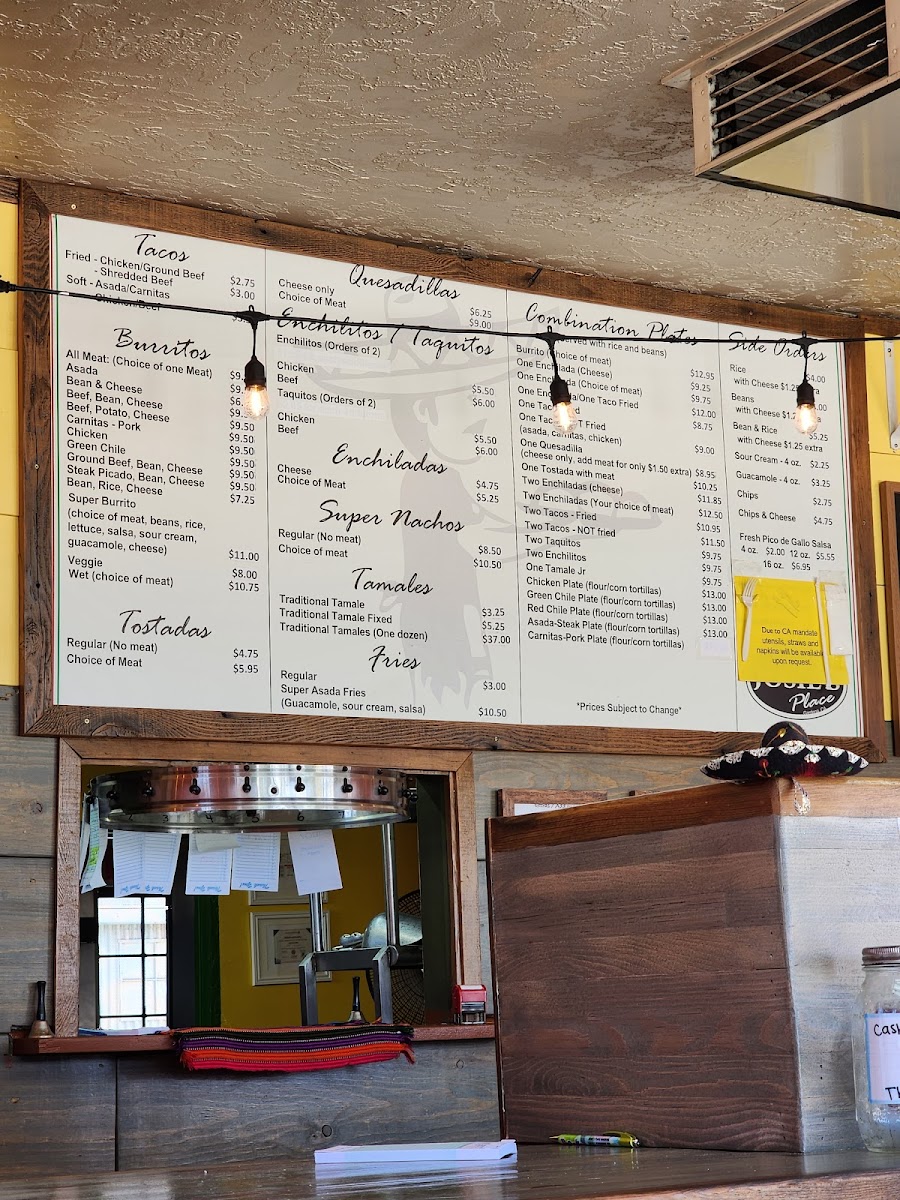 Tacos
Fried - Chicken/Ground Beef
- Shredded Beef $2.75
Soft - Asada/Carnitas $3.00
Chicken/Beef
Burritos
All Meat: (Choice of one Meat)
Asada
Bean & Cheese
Beef, Bean, Cheese
Beef, Potato, Cheese $9.50
Carnitas - Pork $9.50
Chicken $9.50
Green Chile $9.50
Ground Beef, Bean, Cheese $9.50
Steak Picado, Bean, Cheese $9.50
Bean, Rice, Cheese $7.25
Super Burrito
(choice of meat, beans, rice,
lettuce, salsa, sour cream,
guacamole, cheese) $11.00
Veggie $8.00
Wet (choice of meat) $10.75
Tostadas
Regular (No meat) $4.75
Choice of Meat $5.95
Quesadillas
Cheese only $6.25
Choice of Meat $9.00
Enchilitos / Taquitos
Enchilitos (Orders of 2)
Chicken $5.50
Beef $6.00
Taquitos (Orders of 2)
Chicken $5.50
Beef $6.00
Enchiladas
Cheese $4.75
Choice of Meat $5.25
Super Nachos
Regular (No meat) $8.50
Choice of meat $10.50
Tamales
Traditional Tamale $3.25
Traditional Tamale Fixed $5.25
Traditional Tamales (One dozen) $37.00
Fries
Regular $3.00
Super Asada Fries
(Guacamole, sour cream, salsa) $10.50
Combination Plates
served with rice and beans)
Burrito (choice of meat) $12.95
One Enchilada (Cheese) $9.25
One Enchilada (Choice of meat) $9.75
One Enchilada/One Taco Fried $12.00
One Taco Fried $8.75
One Taco NOT Fried
(asada, carnitas, chicken) $9.00
One Quesadilla
(cheese only, add meat for only $1.50 extra) $8.95
One Tostada with meat $10.25
Two Enchiladas (cheese) $11.85
Two Enchiladas (Your choice of meat) $12.50
Two Tacos - Fried $10.95
Two Tacos - NOT fried $11.50
Two Taquitos $9.75
Two Enchilitos $9.75
One Tamale Jr $9.75
Chicken Plate (flour/corn tortillas) $13.00
Green Chile Plate (flour/corn tortillas) $13.00
Red Chile Plate (flour/corn tortillas) $13.00
Asada-Steak Plate (flour/corn tortillas) $13.00
Carnitas-Pork Plate (flour/corn tortillas)
*Prices Subject to Change*
Side Orders
Rice $4.00
with Cheese $1.25 extra
Beans
with Cheese
Bean & Rice $5.25
with Cheese $1.25 extra
Sour Cream - 4 oz. $2.25
Guacamole - 4 oz. $3.25
Chips $2.75
Chips & Cheese $4.75
Fresh Pico de Gallo Salsa
4 oz. $2.00 12 oz. $5.55
16 oz. $6.95
Due to CA mandate
utensils, straws and
napkins will be available
upon request.
Place
3 4 5 6